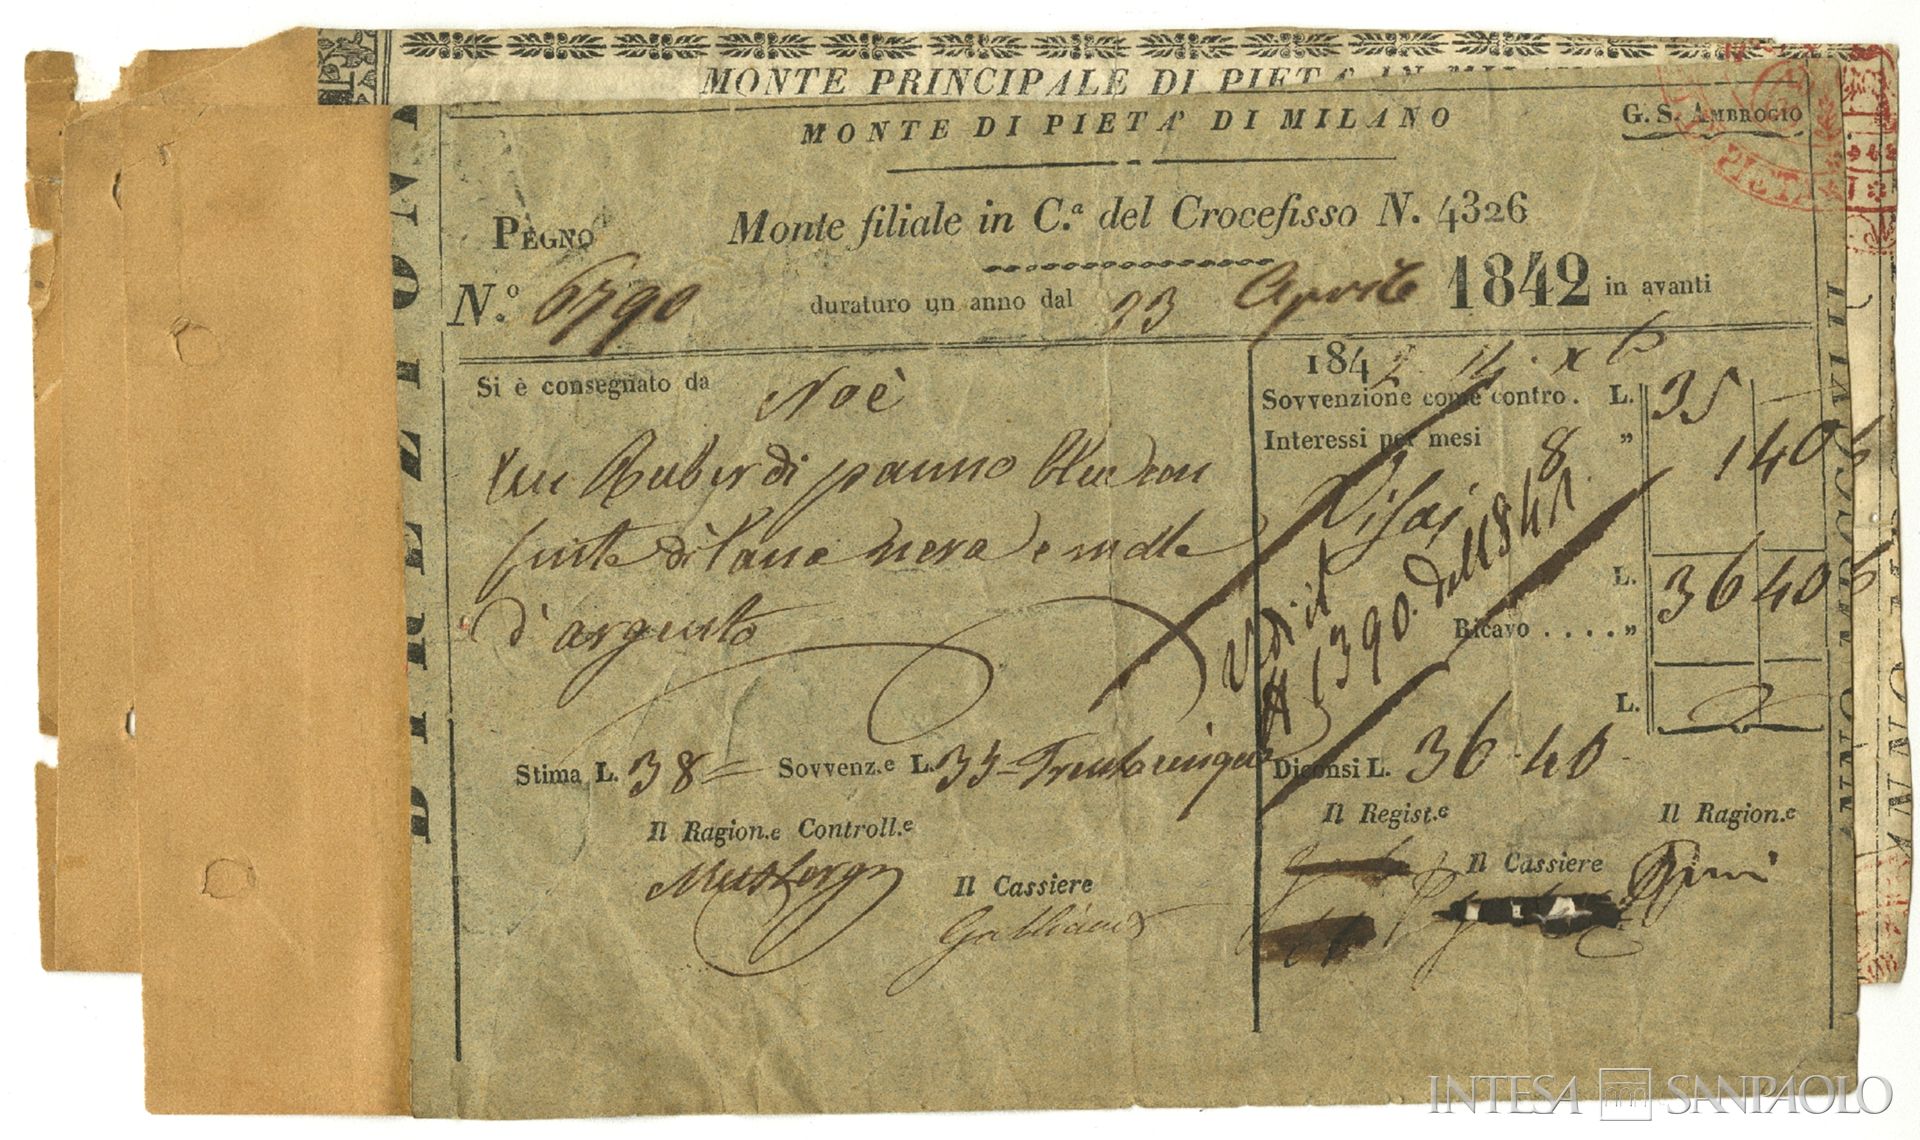 MONTE PRINCIPALE DI PIETA IN
MONTE DI PIETA' DI MILANO
G. S. AMBROGIO
PIETA
PEGNO
Monte filiale in C.a del Crocefisso N. 4326
N.o 6790
duraturo un anno dal 23 Aprile 1842 in avanti
Si è consegnato da Noè
di panno bleu con
finte di lana nera e
d'argento
Stima L. 38 = Sovvenz.e L. 35 = Trentacinque
Il Ragion.e Controll.e
Il Cassiere
1842 14
Sovvenzione come contro. L. 35
Interessi per mesi 8 " 1 40
L. 36 40
Ricavo . . . . "
L.
Vedi il
N 1390. dell 1841.
Diconsi L. 36 40
Il Regist.e
Il Ragion.e
Il Cassiere
DIREZION
INTESA SANPAOLO